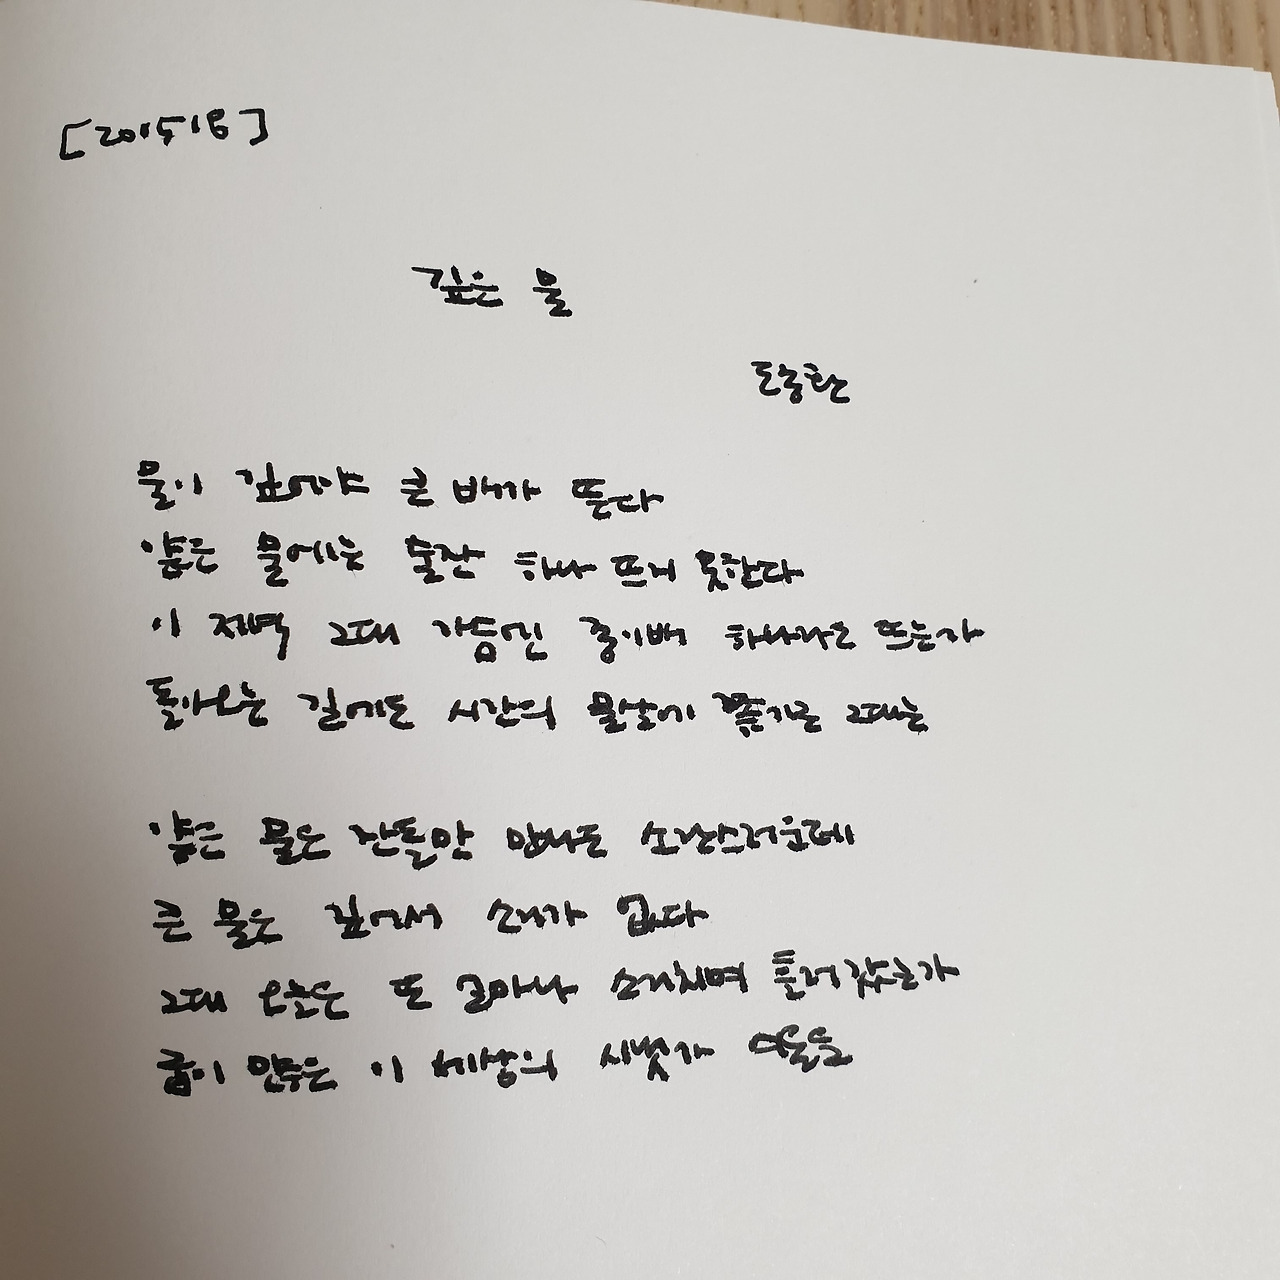 [201518]
깊은 물
도종환
물이 깊어야 큰 배가 뜬다
얕은 물에는 술잔 하나 뜨지 못한다
이 저녁 그대 가슴엔 종이배 하나라도 뜨는가
돌아오는 길에도 시간의 물살에 쫓기는 그대는
얕은 물은 잔돌만 만나도 소란스러운데
큰 물은 깊어서 소리가 없다
그대 오늘은 또 얼마나 소리치며 흘러갔는가
굽이 많은 이 세상의 시냇가 여울을